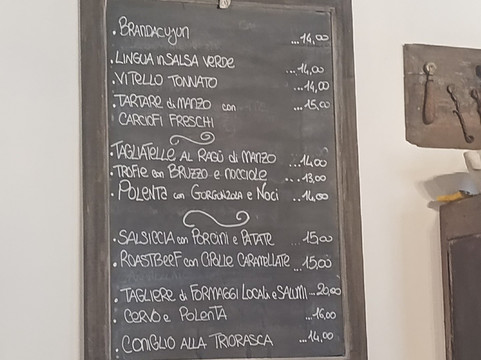 • BRANDACUJUN ...14,00
• LINGUA in SALSA VERDE ...14,00
• VITELLO TONNATO ...14,00
• TARTARE di MANZO con ...15,00
CARCIOFI FRESCHI
• TAGLIATELLE AL RAGÙ di MANZO ...14,00
• TROFIE con BRUZZO e NOCCIOLE ...13,00
• POLENTA con GORGONZOLA e NOCI ...14,00
• SALSICCIA con PORCINI e PATATE ...15,00
• ROASTBEEF con CIPOLLE CARAMELLATE ...15,00
• TAGLIERE di FORMAGGI LOCALI e SALUMI ...20,00
• CERVO e POLENTA ...16,00
• CONIGLIO ALLA TRIORASCA ...14,00